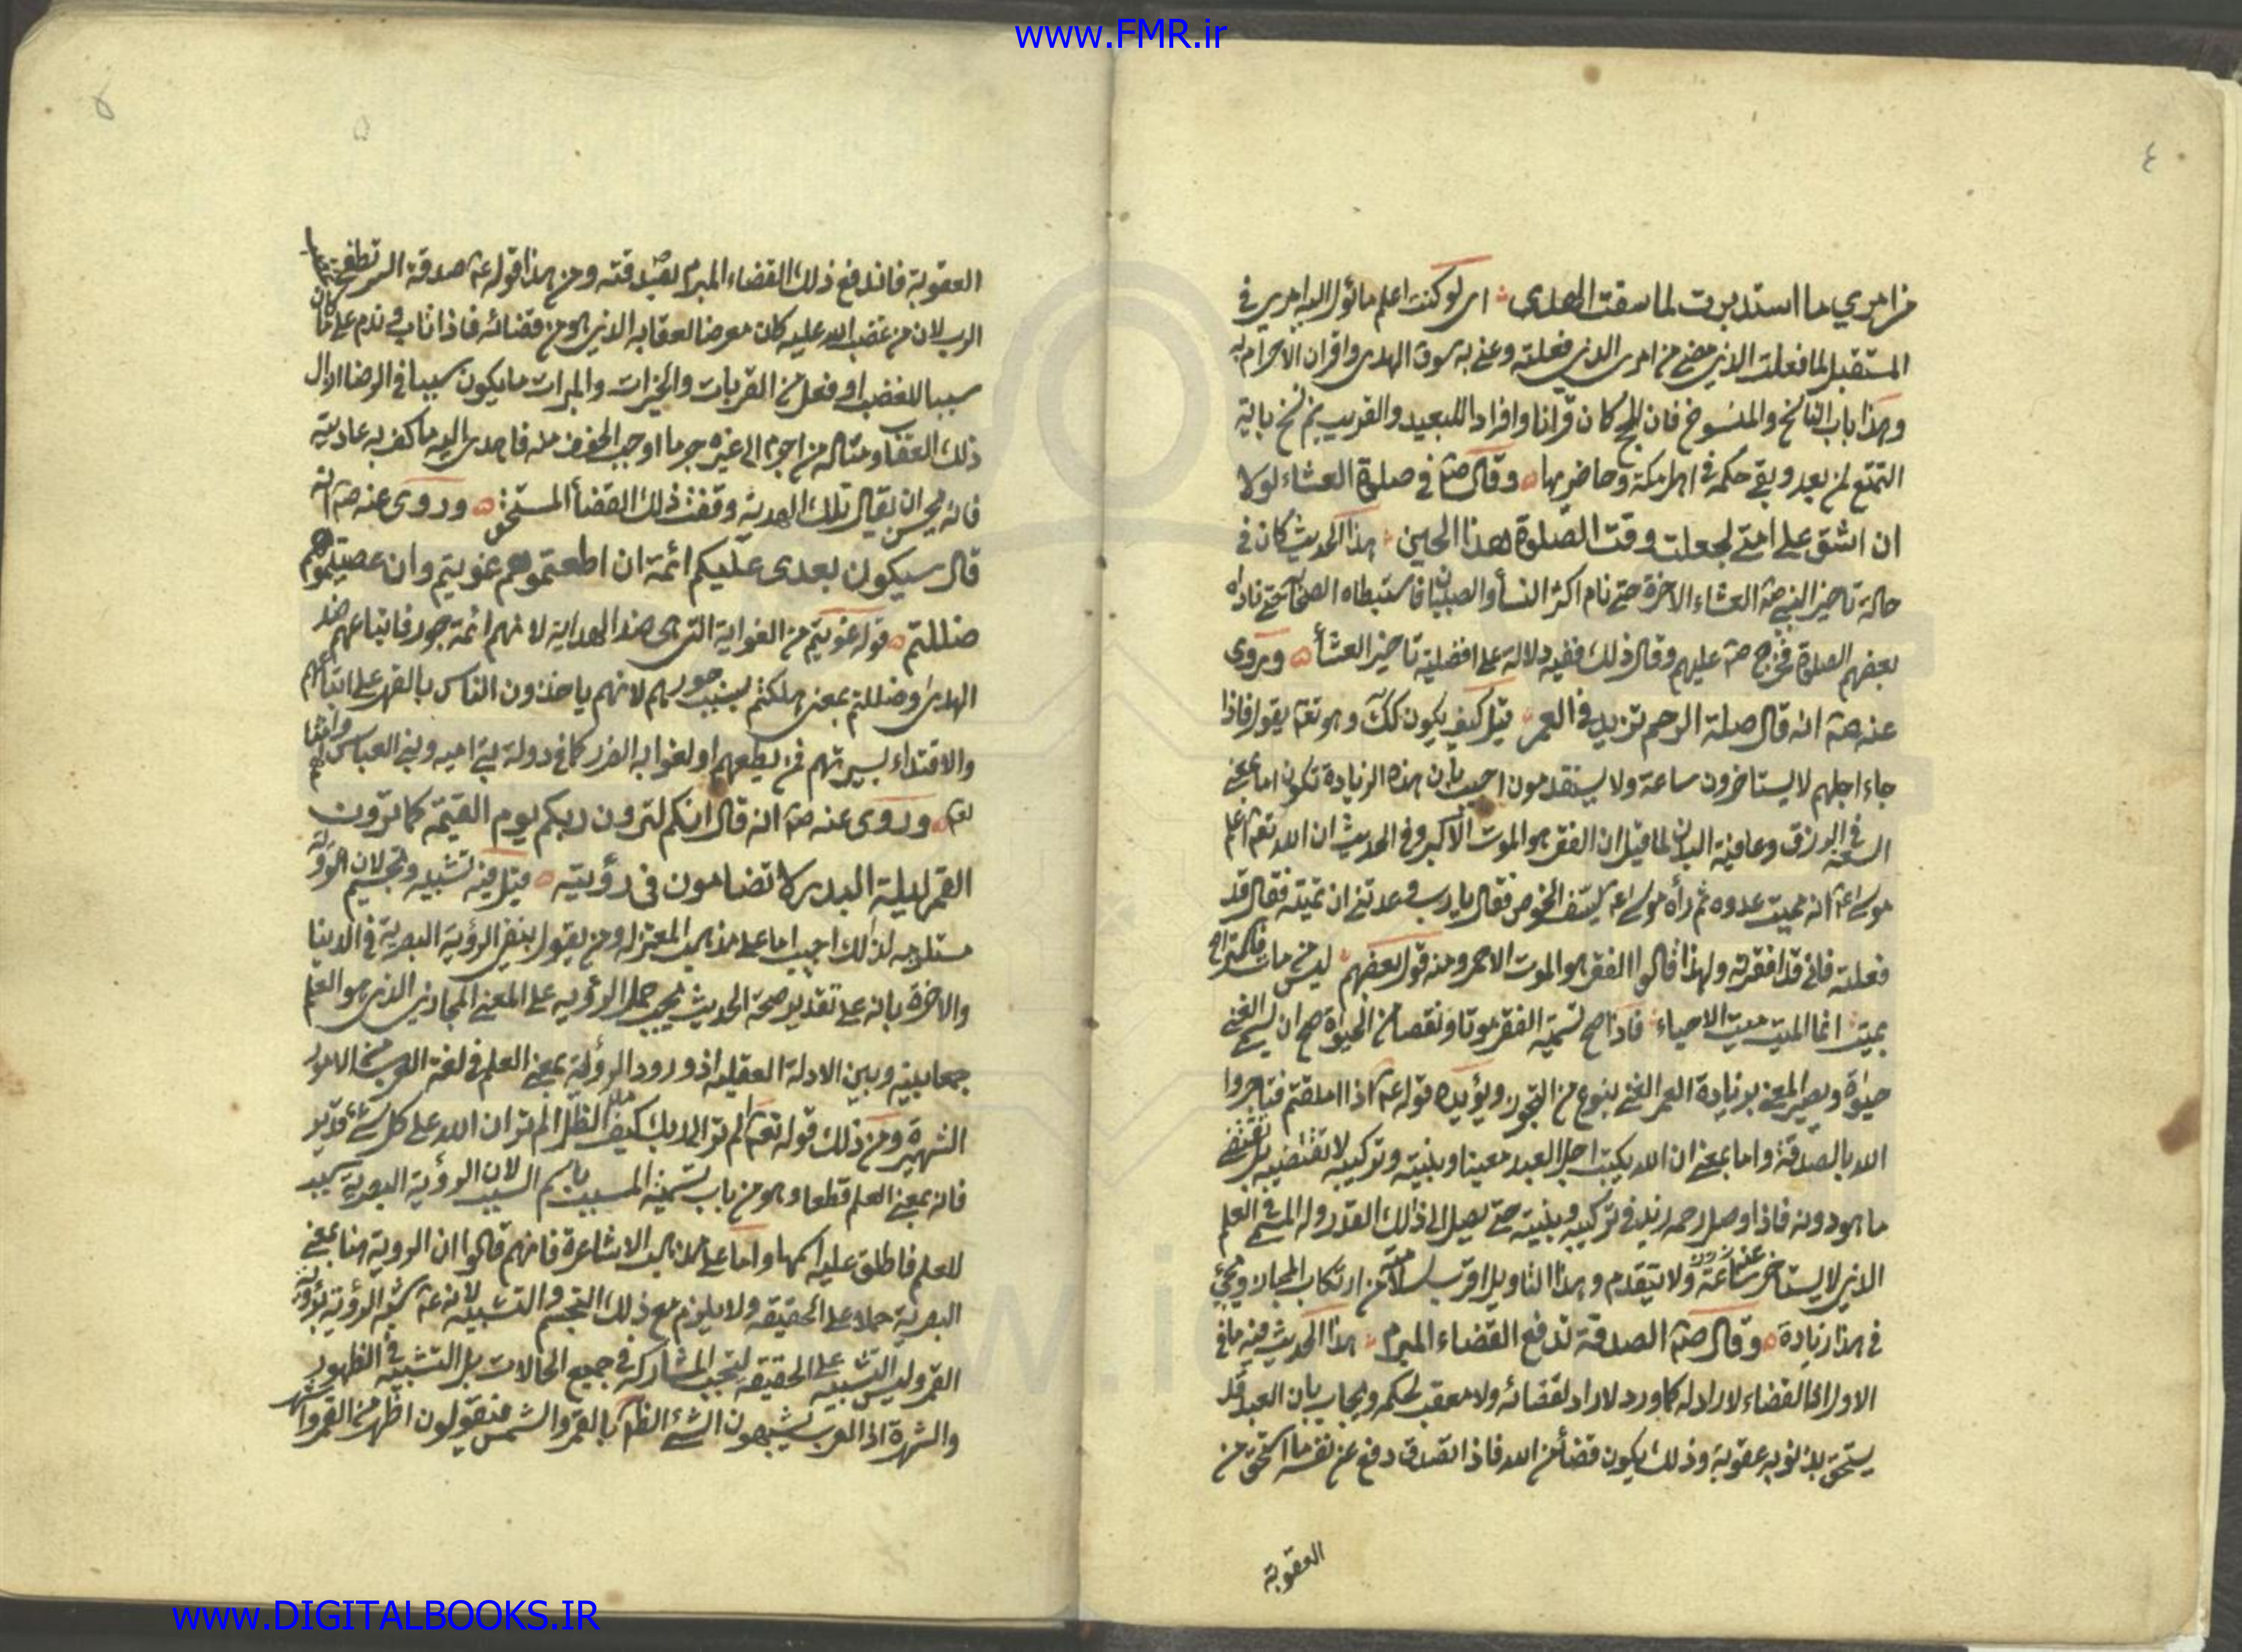 www.FMR.ir
٤
من امري ما استدبرت لما سقت الهدى اى لو كنت اعلم ما يؤل اليه امري في
المستقبل لما فعلت الذي مضى من امرى الذي فعلته وعنى به سوق الهدى واقران الاحرام به
وهذا باب الناسخ والمنسوخ فان الحج كان قرانا وافرادا للبعيد والقريب ثم نسخ باية
التمتع لمن بعد وبقى حكمه في اهل مكة وحاضريها وقال صم في صلوة العشاء لولا
ان اشق على امتى لجعلت وقت الصلوة هذا الحين هذا الحديث كان في
حالة تاخير النبى صم العشاء الاخرة حتى نام اكثر النسأ والصبيان فاستبطاه الصحابة حتى ناداه
بعضهم الصلوة فخرج صم عليهم وقال ذلك ففيه دلالة على افضلية تاخير العشأ ويروى
عنه صم انه قال صلة الرحم تزيد في العمر قيل كيف يكون كك وهو تعم يقول فاذا
جاء اجلهم لا يستاخرون ساعة ولا يستقدمون اجيب بان هذه الزيادة تكون اما بمعنى
السعة في الرزق وعافية البدن لما قيل ان الفقر هو الموت الاكبر وفي الحديث ان الله تعم اعلم
موسى عم انه يميت عدوه ثم رأه موسى عم يسف الخوص فقال يا رب وعدتنى ان تميته فقال قد
فعلته فانى قد افقرته ولهذا قالوا الفقر هو الموت الاحمر ومنه قول بعضهم ليس من مات فاستراح
بميت انما الميت ميت الاحياء فاذا صح تسمية الفقر موتا ونقصا من الحيوة صح ان يسمى الغنى
حيوة ويصير المعنى بزيادة العمر الغنى بنوع من التجوز ويؤيده قوله عم اذا املقتم فتاجروا
الله بالصدقة واما بمعنى ان الله يكتب اجل العبد معينا وبنيته وتركيبه لا تقتضيه بل تقتضى
ما هو دونه فاذا وصل رحمه زيد في تركيبه وبنيته حتى يصل الى ذلك القدر وله المسمى في العلم
الذي لا يستاخر عنه ساعة ولا يتقدم وهذا التاويل اقرب لسلامته من ارتكاب المجاز
في هذا زيادة وقال صم الصدقة تدفع القضاء المبرم هذا الحديث فيه ما في
الاول اذ القضاء لا راد له كما ورد لا راد لقضائه ولا معقب لحكمه ويجاب بان العبد قد
يستحق بذنوبه عقوبة وذلك يكون قضأ من الله فاذا تصدق دفع عن نفسه ما استحق من
العقوبة
٥
٥
العقوبة فاندفع ذلك القضاء المبرم بصدقته ومن هذا قوله عم صدقة السر تطفى غضب
الرب لان من غضب الله عليه كان معرضا لعقابه الذي هو من قضائه فاذا تاب وندم على ما كان
سببا للغضب او فعل من القربات والخيرات والمبرات ما يكون سببا في الرضا ازال
ذلك العقاب ومثاله من اجرم الى غيره جرما اوجب الخوف منه فاهدى اليه ما كف به عاديته
فانه يحسن ان يقال تلك الهدية وقفت ذلك القضأ المستحق وروى عنه صم انه
قال سيكون بعدى عليكم ائمة ان اطعتموهم غويتم وان عصيتموهم
ضللتم قوله غويتم من الغواية التى هى ضد الهداية لانهم ائمة جور فاتباعهم ضد
الهدى وضللتم بمعنى هلكتم بسبب جورهم لانهم ياخذون الناس بالقهر على اتباعهم
والاقتداء بسيرتهم فمن لم يطعهم اولغوا به الضرر كما في دولة بنى اميه وبنى العباس وامثالهم
لعم وروى عنه صم انه قال انكم لترون ربكم يوم القيمة كما ترون
القمر ليلة البدر لا تضامون في رؤيته قيل فيه تشبيه وتجسيم لان الرؤية
مستلزمه لذلك اجيب اما على مذهب المعتزله ومن يقول بنفى الرؤية البصرية في الدنيا
والاخرة بانه على تقدير صحة الحديث يجب حمل الرؤيه على المعنى المجازي الذي هو العلم
جمعا بينه وبين الادلة العقليه اذ ورود الرؤية بمعنى العلم في لغة العرب من الامور
الشهيرة ومن ذلك قوله تعم الم تر الى ربك كيف مد الظل الم تر ان الله على كل شئ قدير
فانه بمعنى العلم قطعا وهو من باب تسمية المسبب باسم السبب لان الرؤية البصرية سبب
للعلم فاطلق عليه اسمها واما على مذهب الاشاعرة فانهم قالوا ان الروية هنا بمعنى
البصرية حملا على الحقيقه ولا يلزم مع ذلك التجسم والتشبيه لانه عم شبه الرؤية برؤية
القمر وليس التشبيه على الحقيقه لتجب المشاركة في جميع الحالات بل التشبيه في الظهور
والشهرة اذ العرب يشبهون الشئ الظاهر بالقمر والشمس فيقولون اظهر من القمر واشهر
www.DIGITALBOOKS.IR